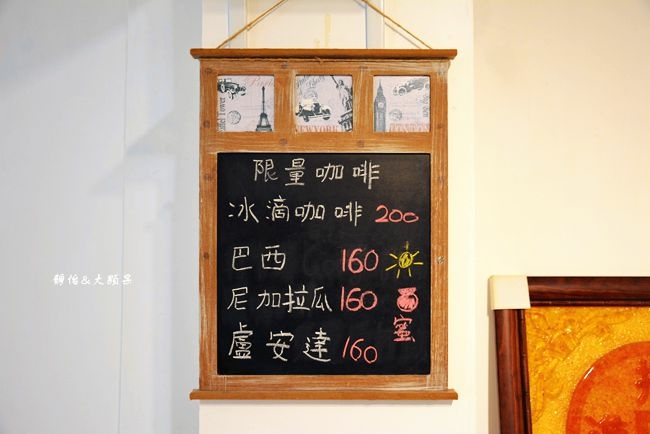 NEW YORK
限量咖啡
冰滴咖啡 200
巴西 160
尼加拉瓜 160
蜜
盧安達 160